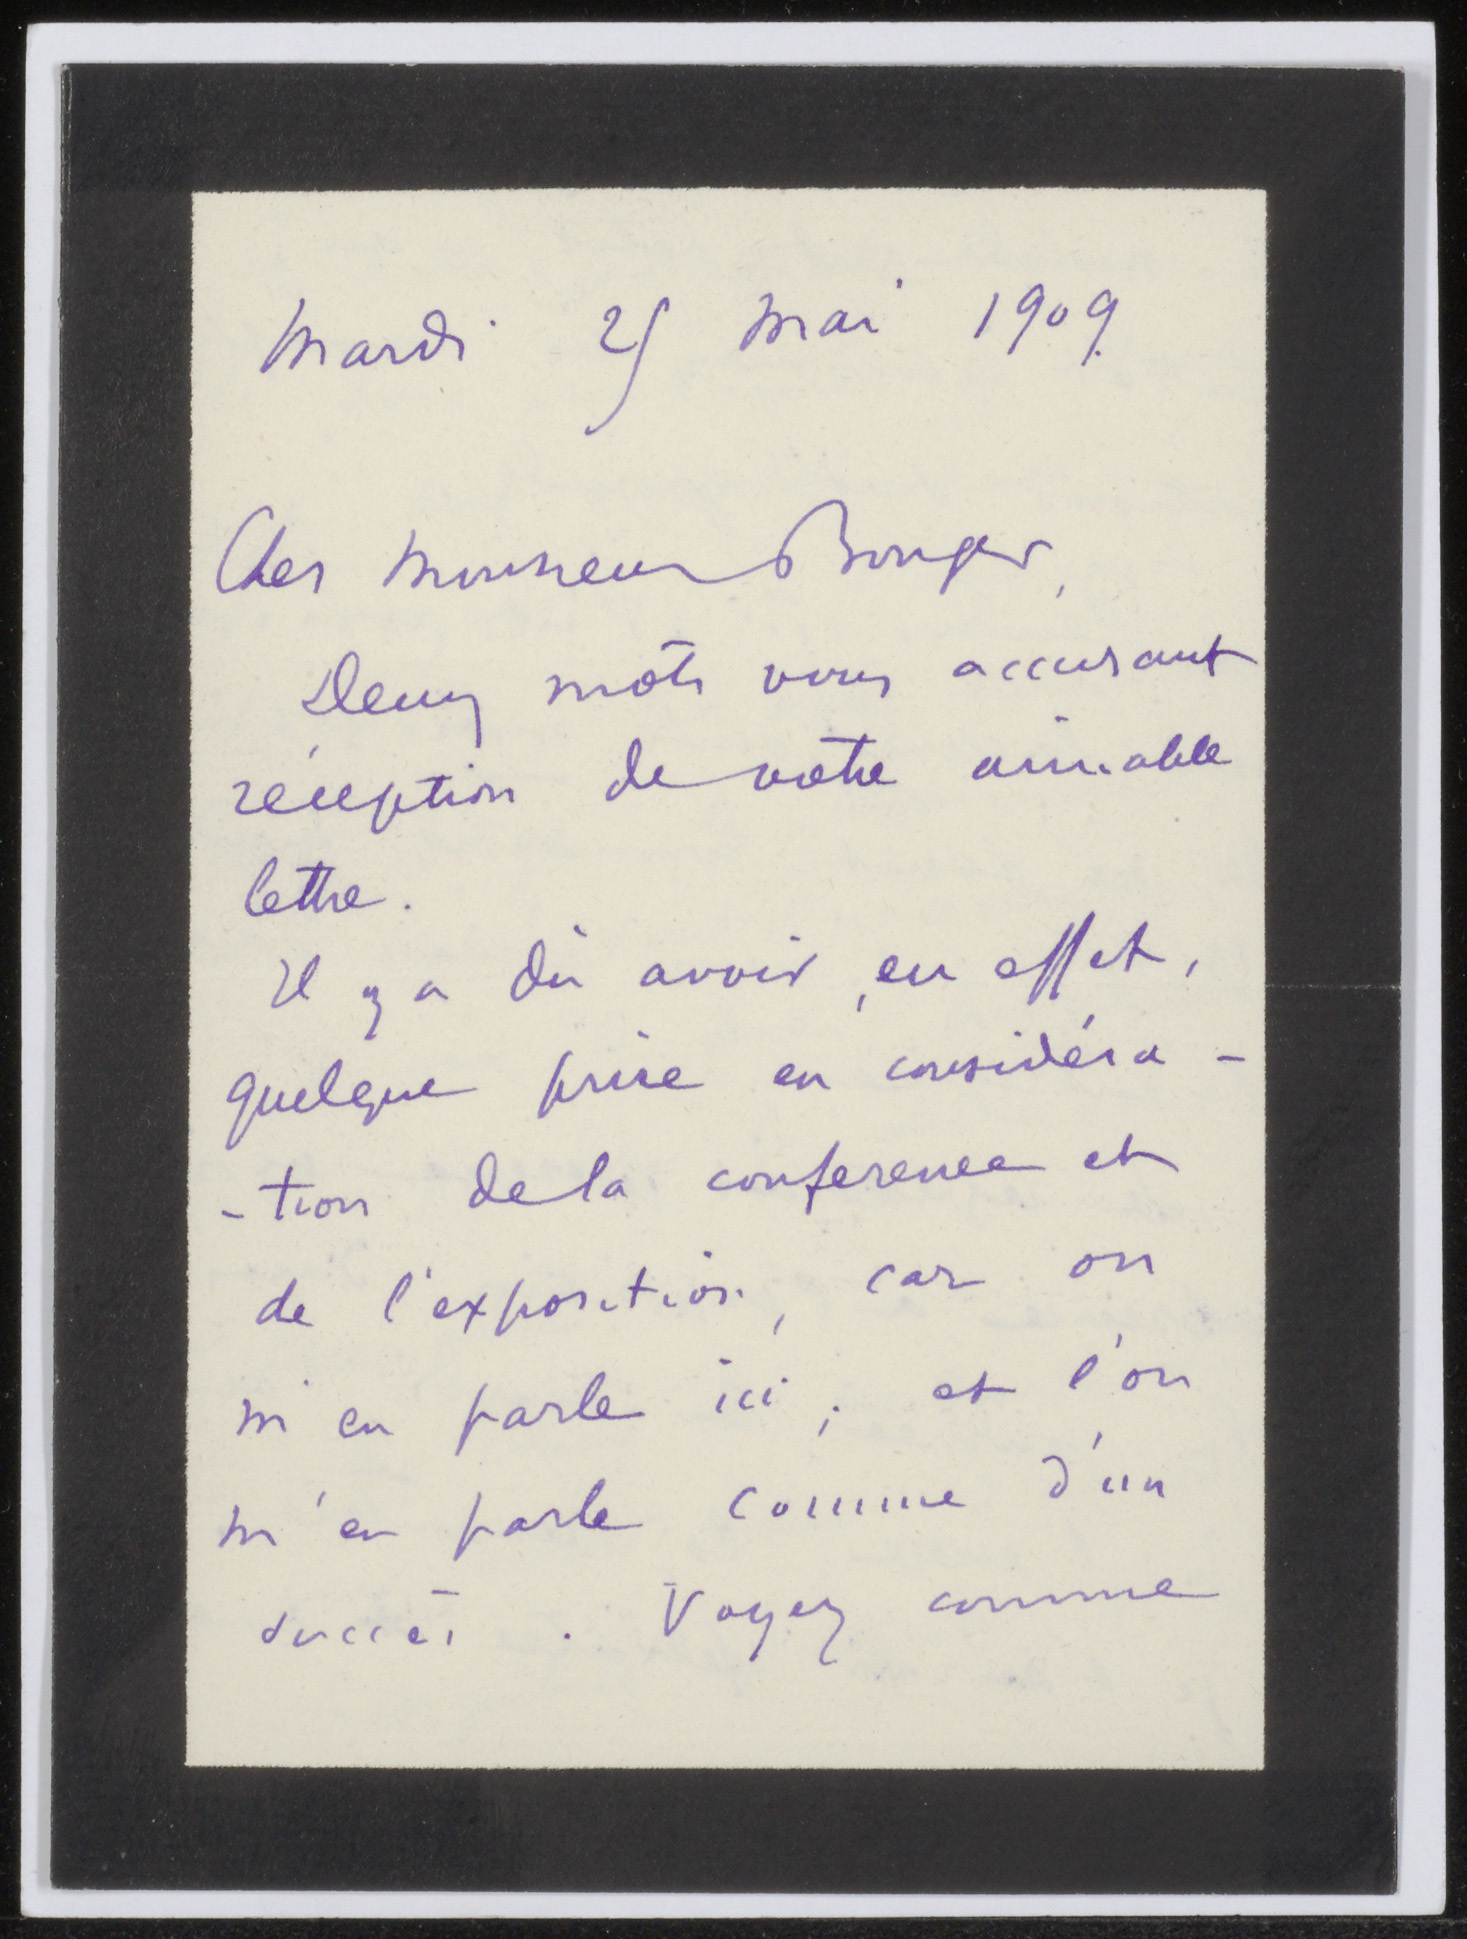 Mardi 25 Mai 1909.
Cher Monsieur Bonger,
Deux mots vous accusant
réception de votre aimable
lettre.
Il y a dû avoir, en effet,
quelque prise en considéra-
-tion de la conference et
de l'exposition, car on
m'en parle ici, et l'on
m'en parle comme d'un
succès. Voyez comme